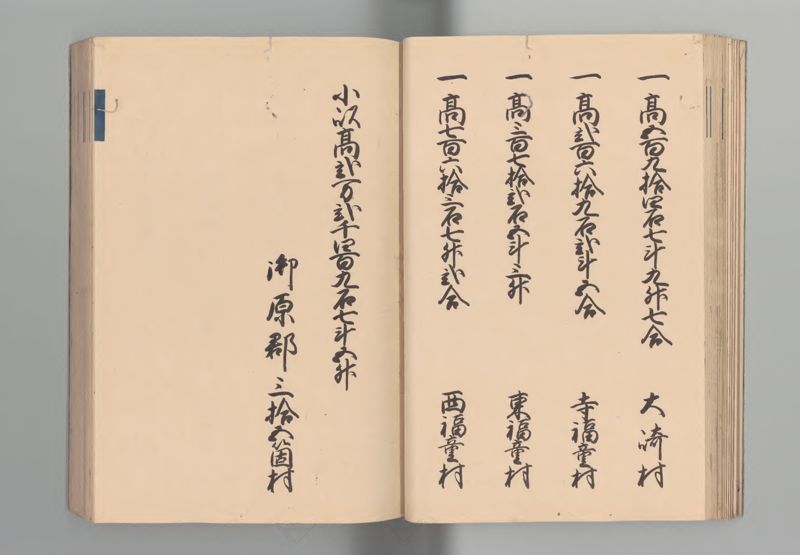 一高五百九拾四石七斗九升七合 大崎村
一高弐百六拾九石弐斗五合 寺福童村
一高三百七拾弐石五斗三升 東福童村
一高七百六拾三石七升弐合 西福童村
小以高弐万弐千四百九石七斗五升
御原郡三拾五箇村